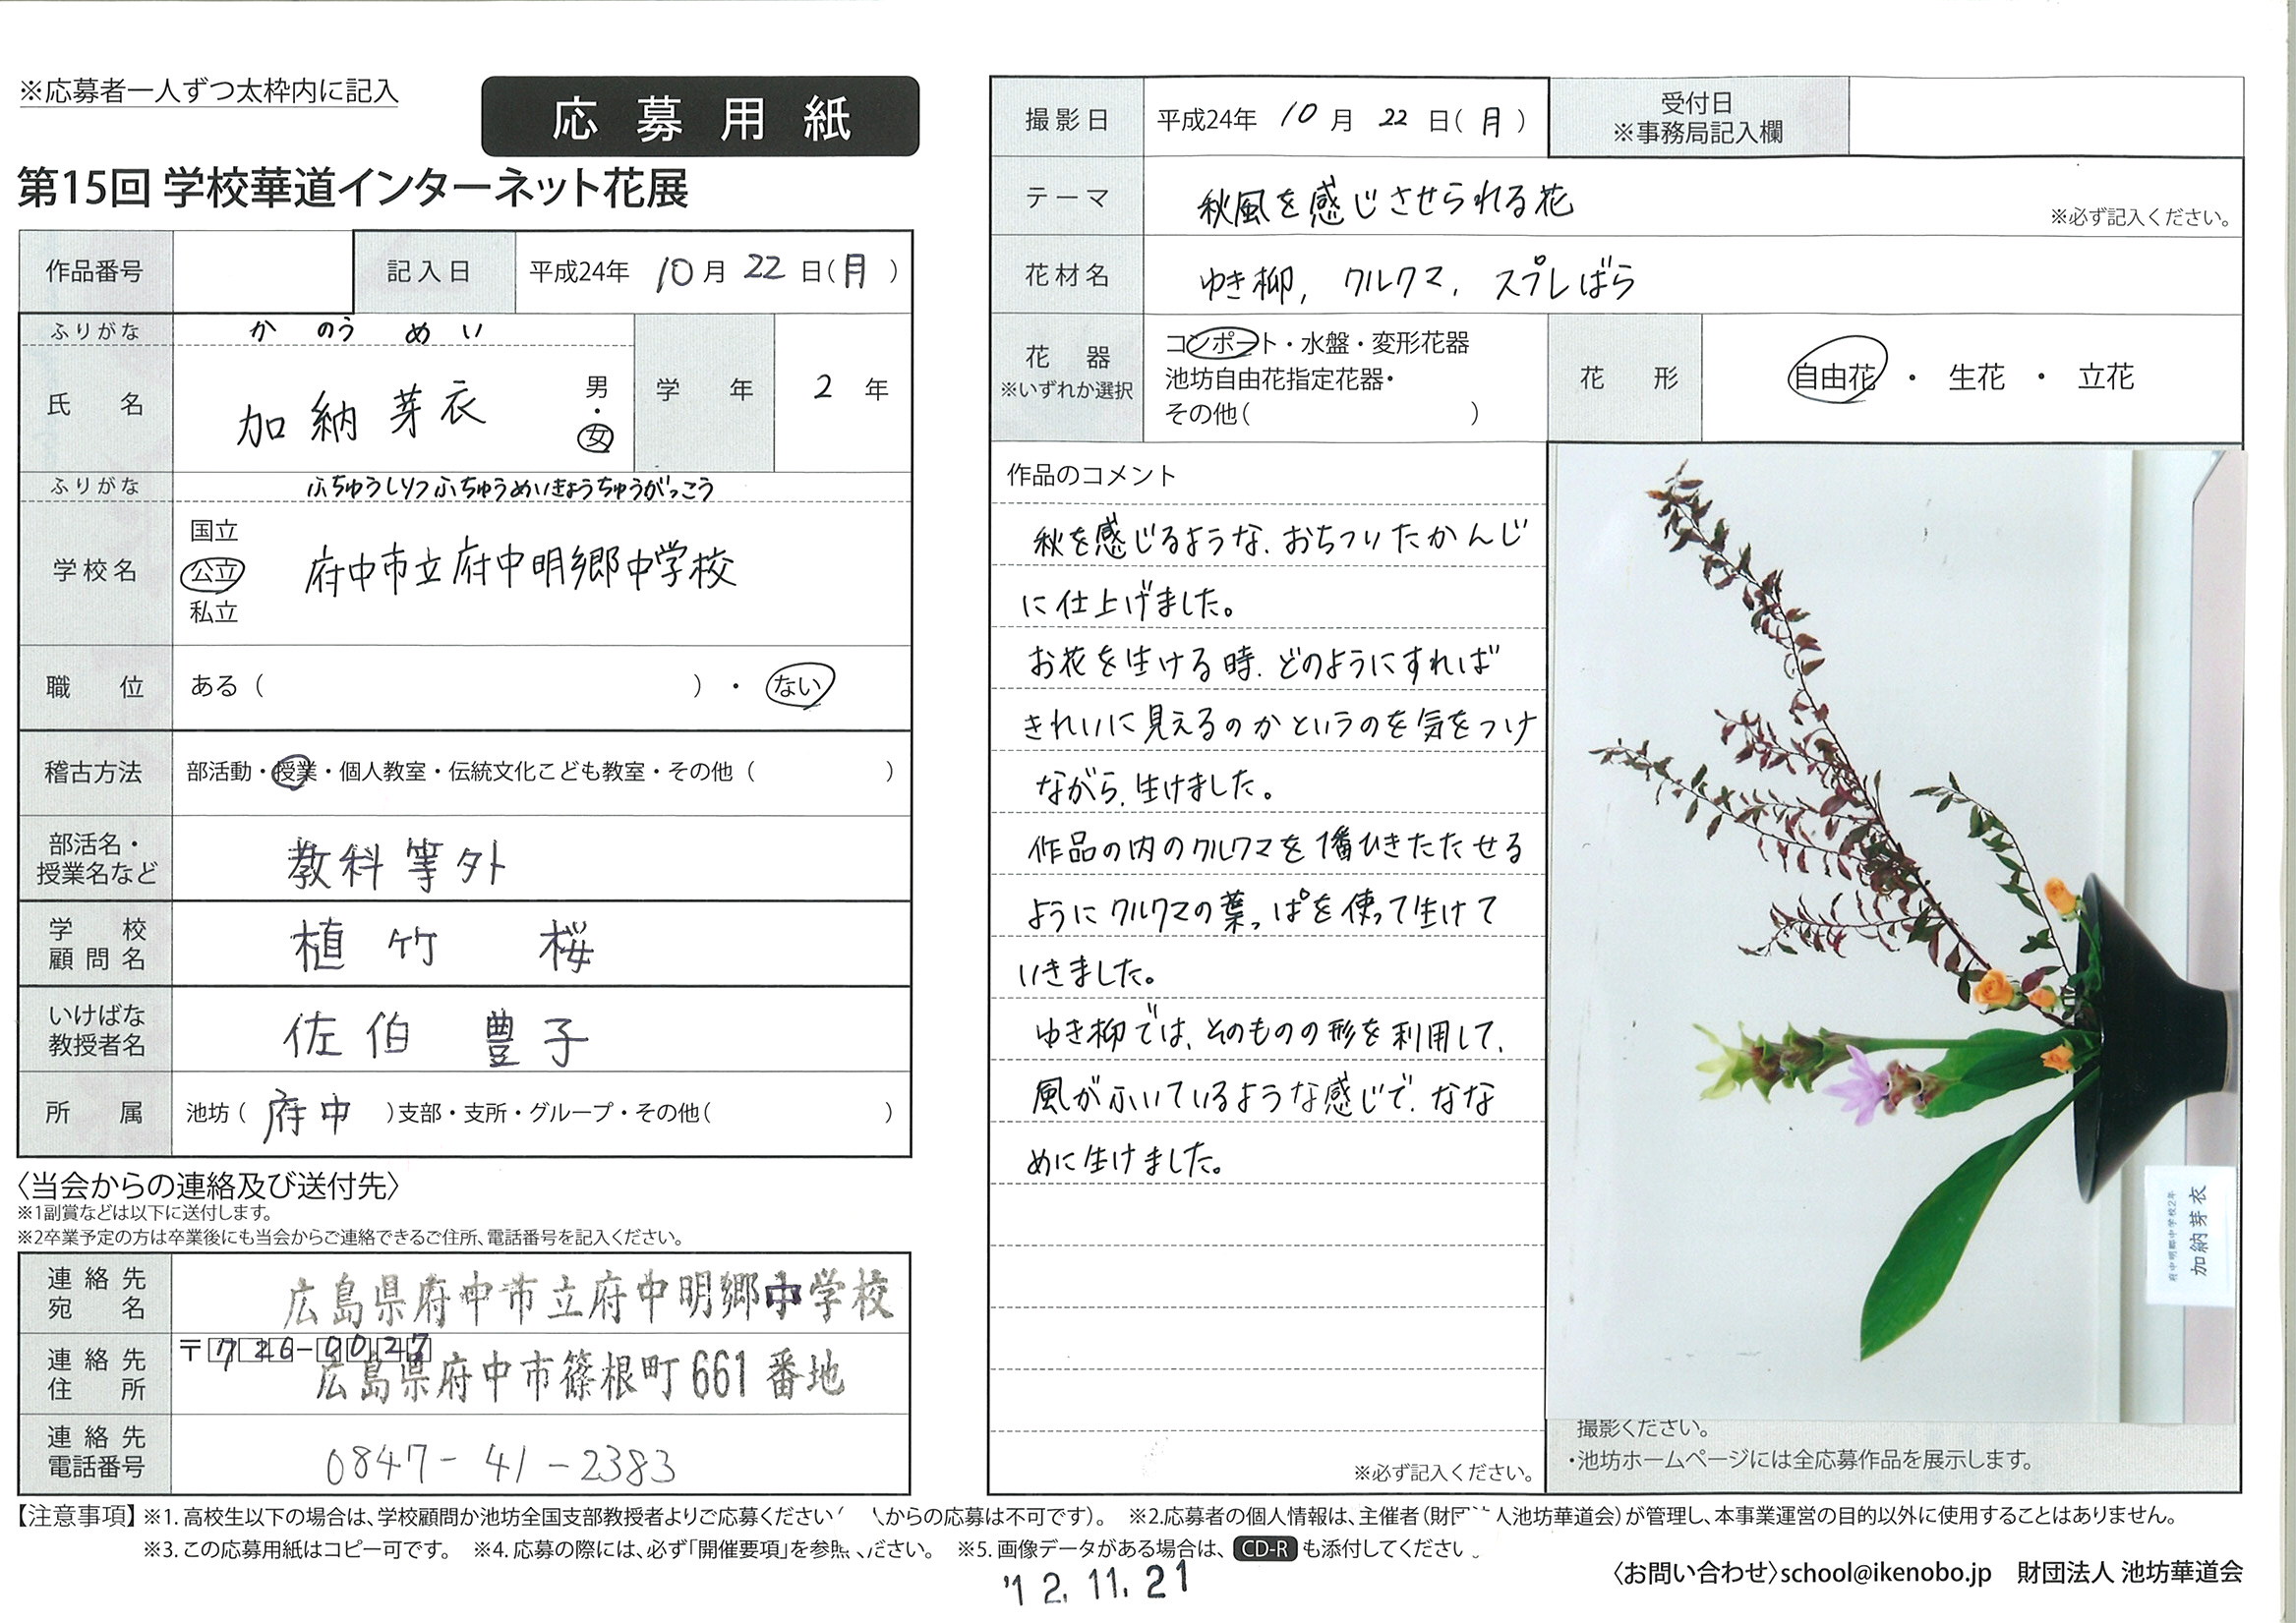 ※応募者一人ずつ太枠内に記入
応募用紙
第15回 学校華道インターネット花展
作品番号
記入日 平成24年 10月 22日(月)
ふりがな かのう めい
氏名 加納芽衣 男・女
学年 2年
ふりがな ふちゅうしりつふちゅうめいきょうちゅうがっこう
学校名 国立 公立 私立 府中市立府中明郷中学校
職位 ある( )・ない
稽古方法 部活動・授業・個人教室・伝統文化こども教室・その他( )
部活名・授業名など 教科等外
学校顧問名 植竹 桜
いけばな教授者名 佐伯 豊子
所属 池坊(府中)支部・支所・グループ・その他( )
〈当会からの連絡及び送付先〉
※1副賞などは以下に送付します。
※2卒業予定の方は卒業後にも当会からご連絡できるご住所、電話番号を記入ください。
連絡先宛名 広島県府中市立府中明郷中学校
連絡先住所 〒726-0027
広島県府中市篠根町661番地
連絡先電話番号 0847-41-2383
撮影日 平成24年 10月 22日(月)
受付日
※事務局記入欄
テーマ 秋風を感じさせられる花
※必ず記入ください。
花材名 ゆき柳, クルクマ, スプレばら
花器 ※いずれか選択
コンポート・水盤・変形花器
池坊自由花指定花器・
その他( )
花形 自由花・生花・立花
作品のコメント
秋を感じるような、おちついたかんじ
に仕上げました。
お花を生ける時、どのようにすれば
きれいに見えるのかというのを気をつけ
ながら、生けました。
作品の内のクルクマを1番ひきたたせる
ようにクルクマの葉っぱを使って生けて
いきました。
ゆき柳では、そのものの形を利用して、
風がふいているような感じで、なな
めに生けました。
※必ず記入ください。
府中明郷中学校2年
加納芽衣
撮影ください。
・池坊ホームページには全応募作品を展示します。
【注意事項】※1. 高校生以下の場合は、学校顧問か池坊全国支部教授者よりご応募ください 人からの応募は不可です)。 ※2.応募者の個人情報は、主催者(財団法人池坊華道会)が管理し、本事業運営の目的以外に使用することはありません。
※3. この応募用紙はコピー可です。 ※4. 応募の際には、必ず「開催要項」を参照ください。 ※5. 画像データがある場合は、CD-Rも添付してください。
'12.11.21
〈お問い合わせ〉school@ikenobo.jp 財団法人 池坊華道会